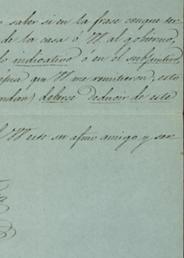 saber si en la frase conque ter
de la casa ó V al gobierno,
lo indicativo o en el infinitivo,
que V me remitieron, esto
deberse deducir de este
su afmo amigo y ser